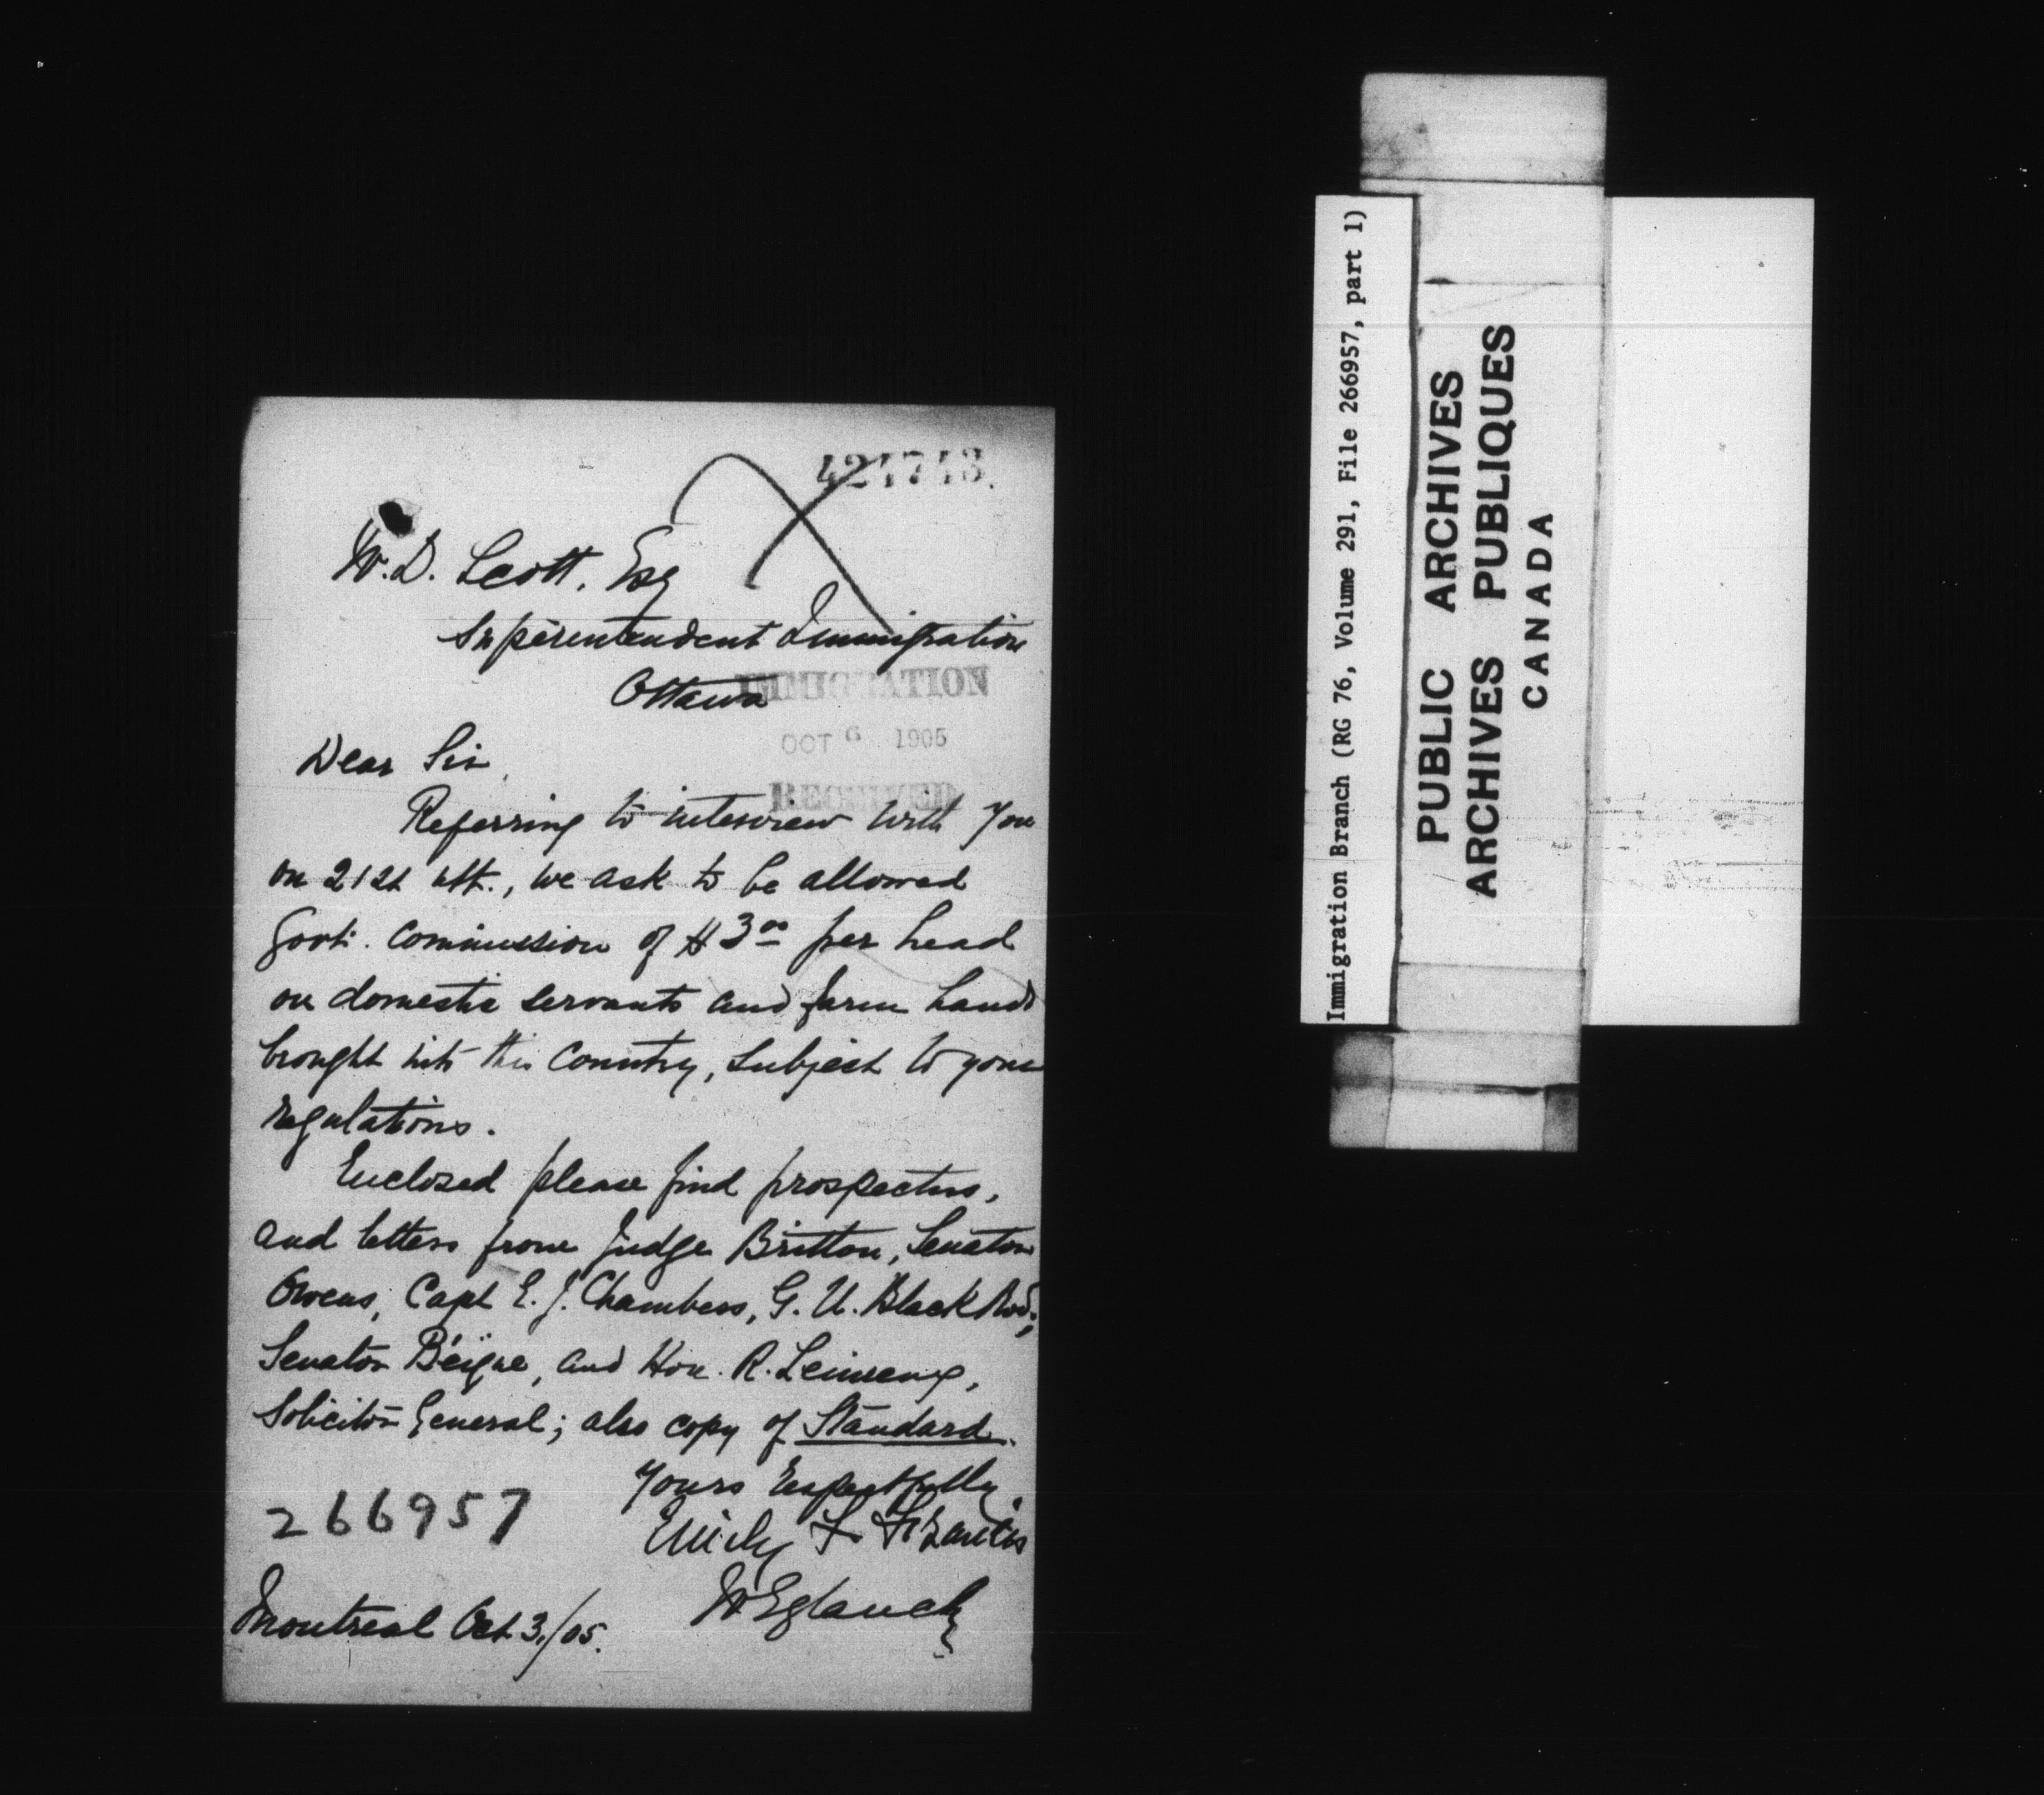 424743.
W. D. Scott, Esq
Superentendent Immigration
Ottawa
IMMIGRATION
OCT 6 1905
RECEIVED
Dear Sir,
Referring to interview with you
on 21st ult., we ask to be allowed
Govt. commission of $3.00 per head
on domestic servants and farm hands
brought into this country, subject to your
regulations.
Enclosed please find prospectus,
and letters from Judge Britton, Senator
Owens, Capt E. J. Chambers, G. U. Black Rod;
Senator Béique, and Hon. R. Lemieux,
Solicitor General; also copy of Standard.
Yours Respectfully,
Emily F.
266957
Montreal Oct 3./05.
Immigration Branch (RG 76, Volume 291, File 266957, part 1)
PUBLIC ARCHIVES
ARCHIVES PUBLIQUES
CANADA